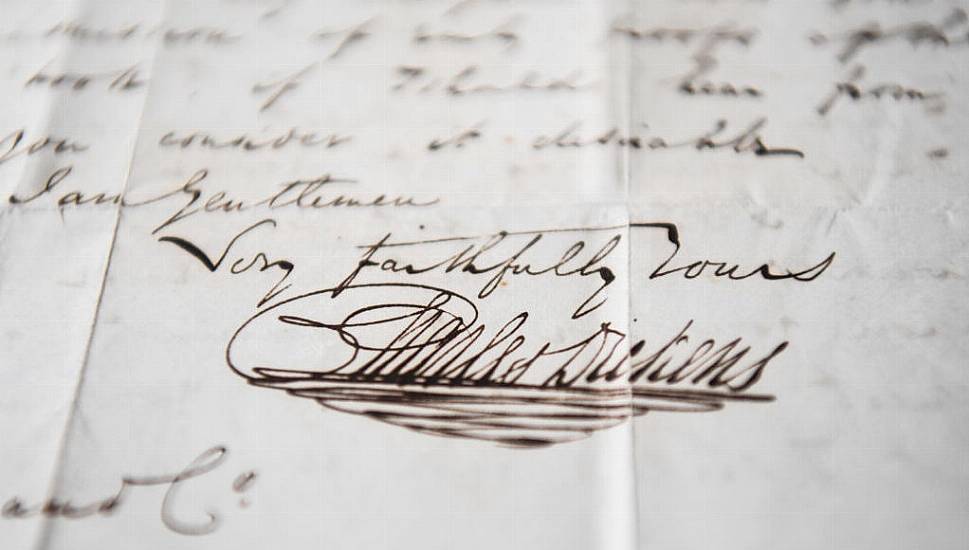 of my
of I should hear from
you consider it desirable
I am Gentlemen
Very faithfully Yours
Charles Dickens
and Co